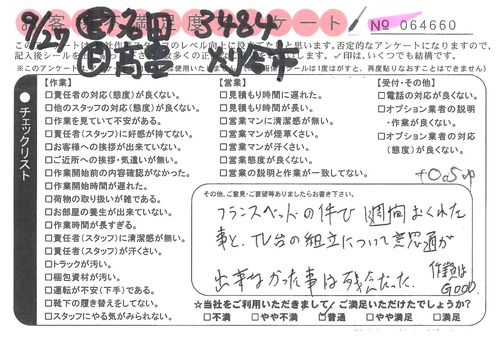 お客様満足度アンケート
No 064660
9/27
3484
記入後シールを
✓印は、いくつでも結構です。
●チェックリスト
【作業】
□責任者の対応(態度)が良くない。
□他のスタッフの対応(態度)が良くない。
□作業を見ていて不安がある。
□責任者(スタッフ)に好感が持てない。
□お客様への挨拶が出来ていない。
□ご近所への挨拶・気遣いが無い。
□作業開始前の内容確認がなかった。
□作業開始時間が遅れた。
□荷物の取り扱いが雑である。
□お部屋の養生が出来ていない。
□作業時間が長すぎる。
□責任者(スタッフ)に清潔感が無い。
□責任者(スタッフ)が汗くさい。
□トラックが汚い。
□梱包資材が汚い。
□運転が不安(下手)である。
□靴下の履き替えをしてない。
□スタッフにやる気がみられない。
【営業】
□見積もり時間に遅れた。
□見積もり時間が長い。
□営業マンに清潔感が無い。
□営業マンが煙草くさい。
□営業マンが汗くさい。
□営業態度が良くない。
□営業の説明と作業が一致してない。
【受付・その他】
□電話の対応が良くない。
□オプション業者の説明・作業が良くない。
□オプション業者の対応(態度)が良くない。
+0.5up
その他、ご意見・ご要望等ありましたらお書き下さい。
フランスベットの件で1週間おくれた
事と、TV台の組立について意思通が
出来なかった事は残念だった。
作業は
GOOD.
☆当社をご利用いただきまして!ご満足いただけたでしょうか?
□不満 □やや不満 □普通 □やや満足 □満足